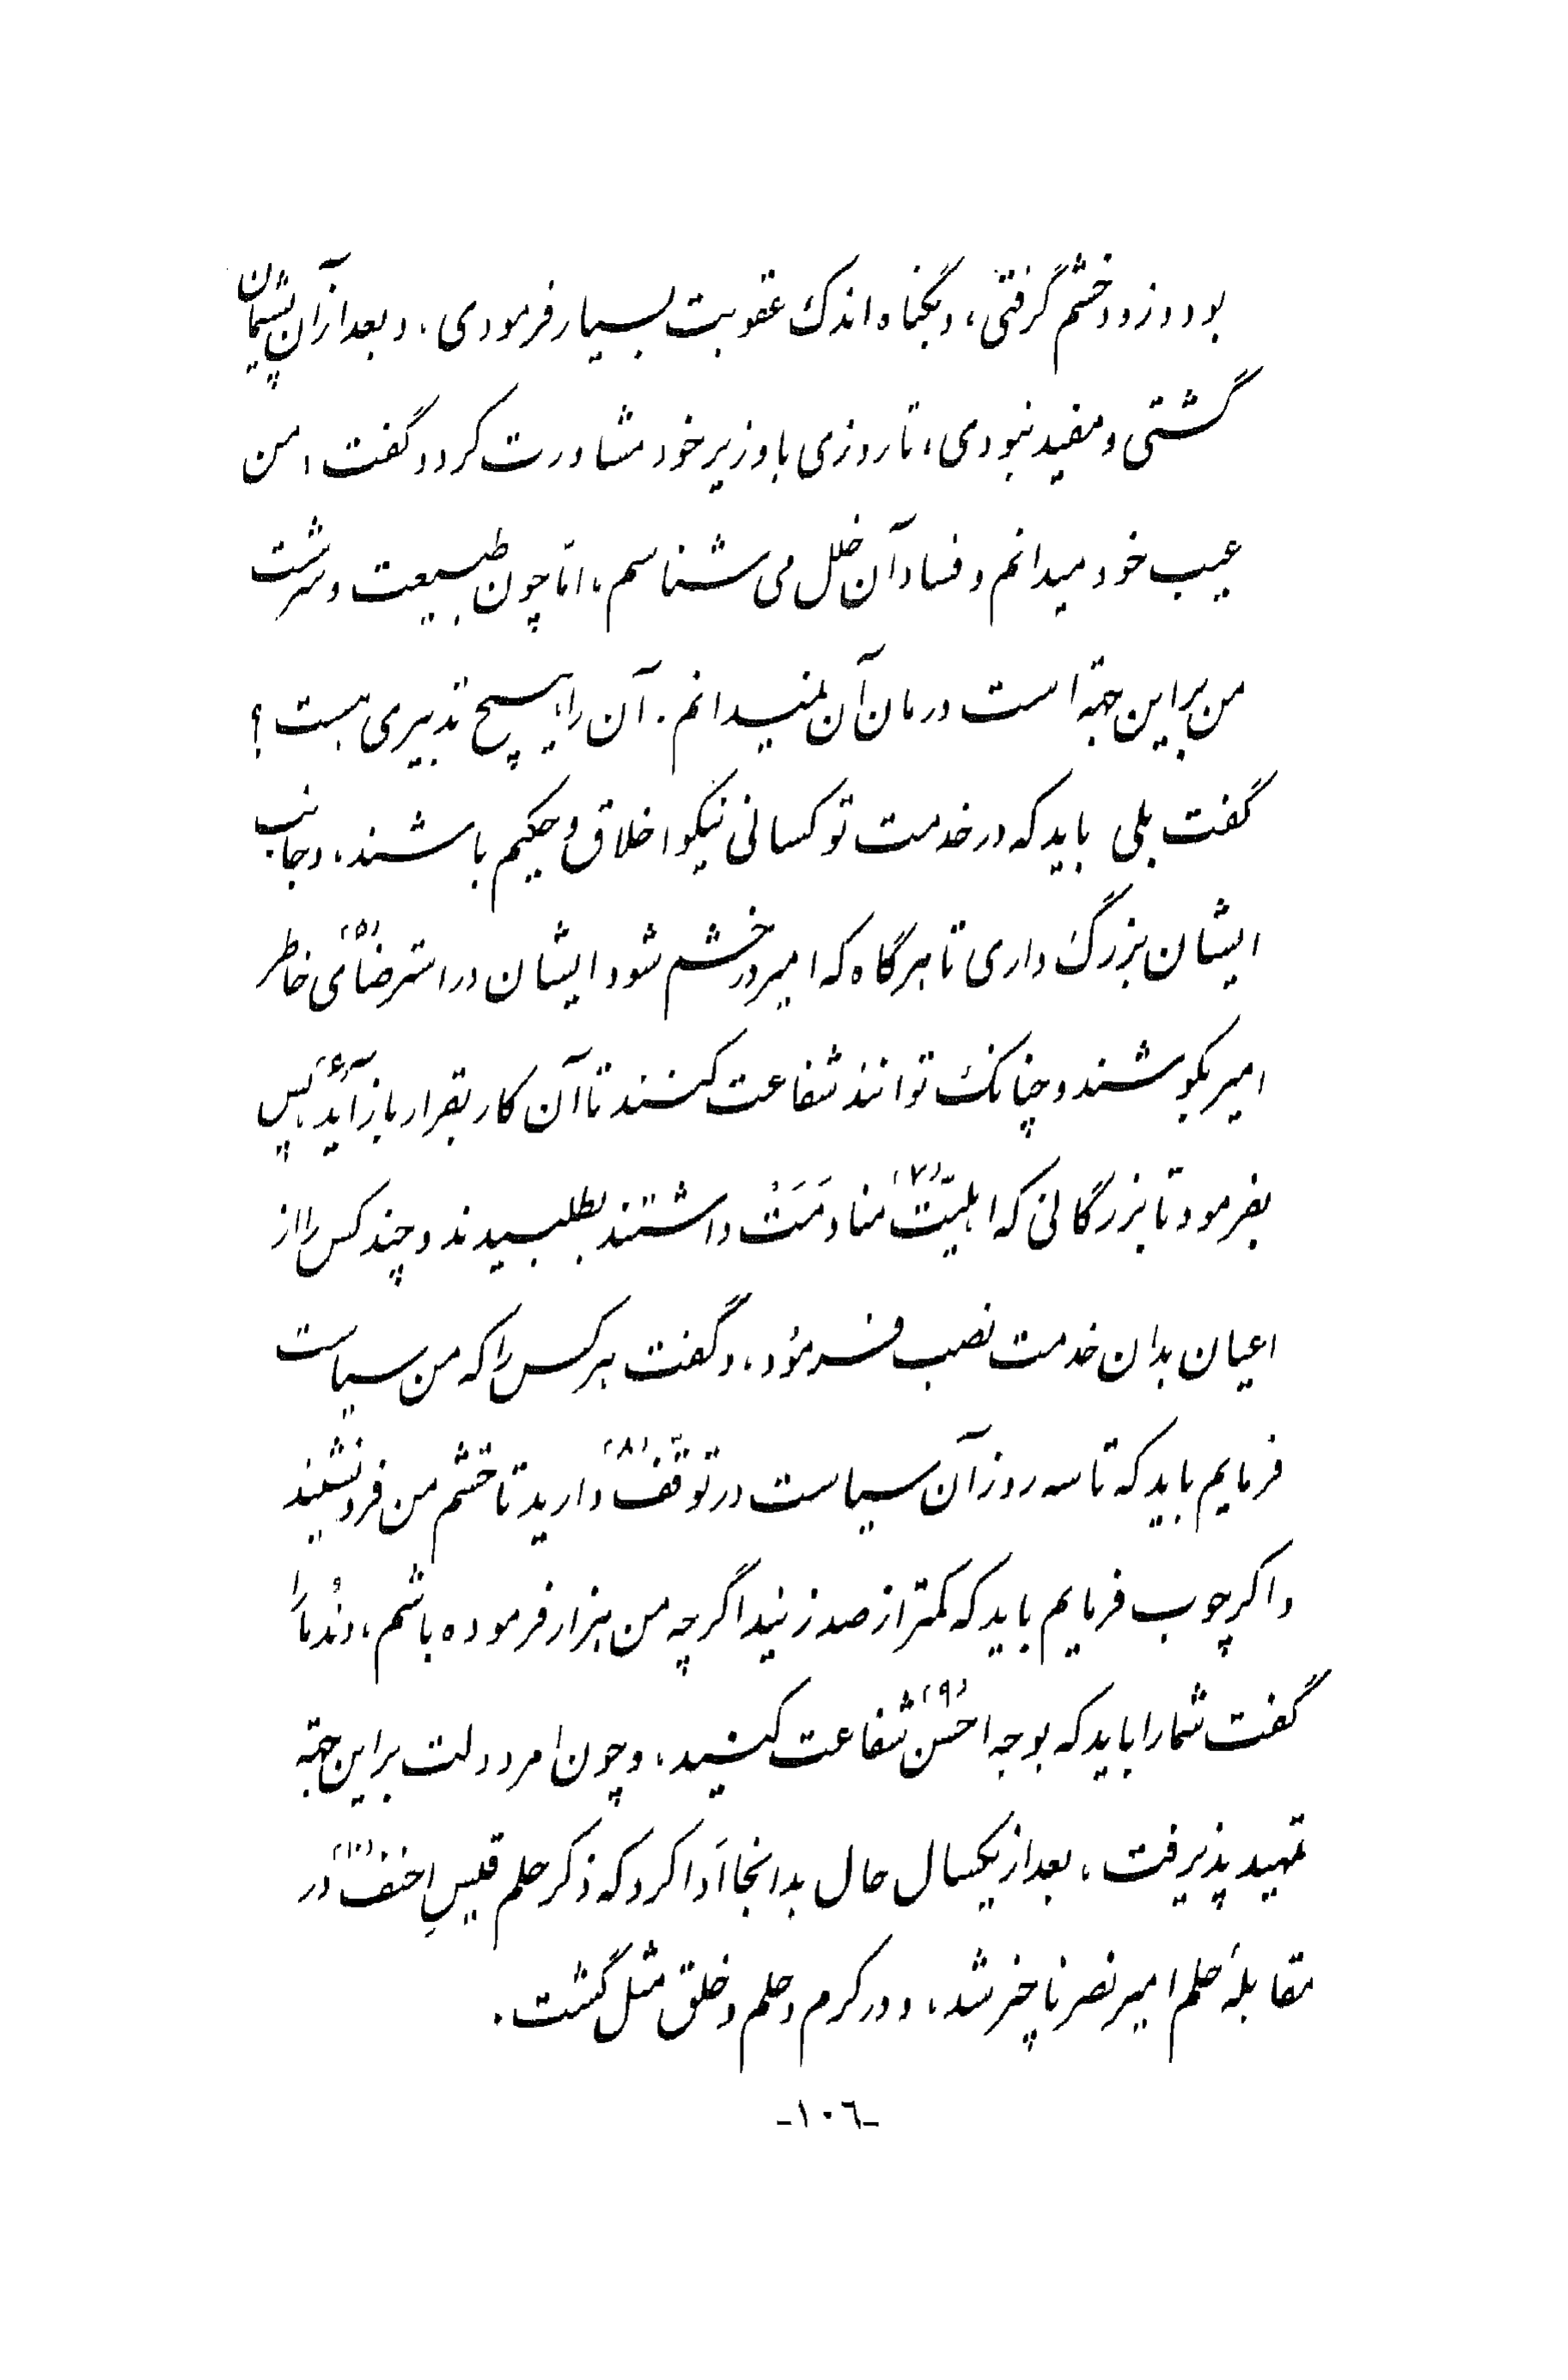 بود و زود خشم گرفتی، و بگناه اندک عقوبت بسیار فرمودی، و بعد از آن پشیمان
گشتی و مفید نبودی، تا روزی با وزیر خود مشاورت کرد و گفت، من
عیب خود میدانم و فساد آن خلل می شناسم، امّا چون طبیعت و سرشت
من براین جمله است درمان آن نمیدانم. آن را هیچ تدبیری هست؟
گفت بلی باید که در خدمت تو کسانی نیکو اخلاق و حکیم باشند، و جانب
ایشان بزرگ داری تا هرگاه که امیر در خشم شود ایشان در استرضای(۵) خاطر
امیر بکوشند و چنانک توانند شفاعت کنند تا آن کار بقرار باز آید(۶)، پس
بفرمود تا بزرگانی که اهلیّت(۷) منادمَتَْ داشتند بطلبیدند و چند کس را از
اعیان بدان خدمت نصب فرمُود، و گفت هر کس را که من سیاست
فرمایم باید که تا سه روز آن سیاست در توقّف(۸) دارید تا خشم من فرو نشیند
و اگر چوب فرمایم باید که کمتر از صد زنید اگر چه من هزار فرموده باشم، و نُدَما را
گفت شما را باید که بوجه احسن(۹) شفاعت کنید، و چون امر دولت بر این جمله
تمهید پذیرفت، بعد از یکسال حال بدانجا اَدا کرد که ذکر حلم قیسِ احنف(۱۰) در
مقابلهٔ حلم امیر نصر ناچیز شد، و در کرم و حلم و خلق مثل گشت.
-۱۰۶-